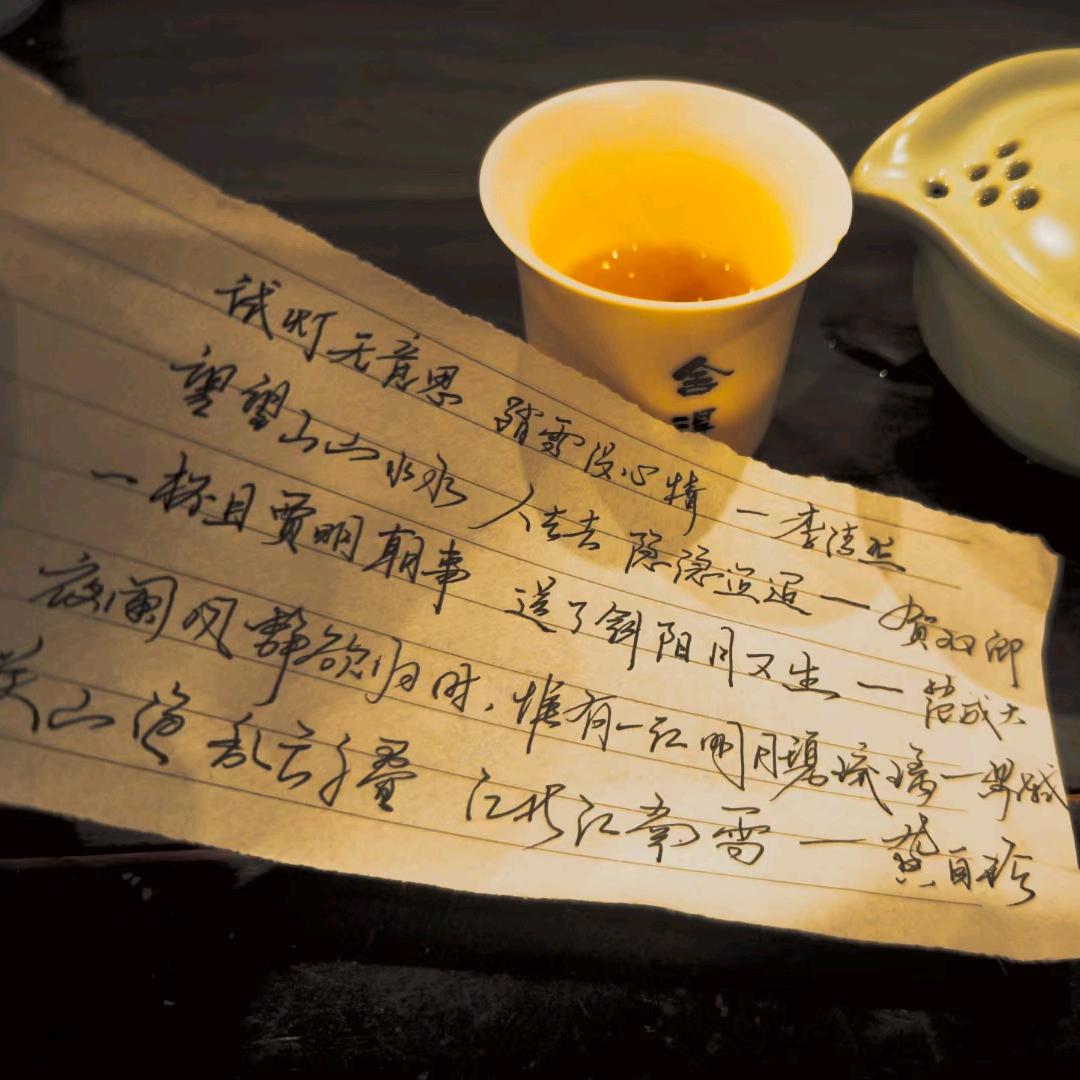 试灯无意思 踏雪没心情 — 李清照
望望山山水水 人去去 隐隐迢迢 — 贺双卿
一杯且買明朝事 送了斜阳月又生 — 范成大
夜阑风静欲归时，惟有一江明月碧琉璃 — 苏轼
关山绝 乱云千叠 江北江南雪 — 龚自珍
舍得